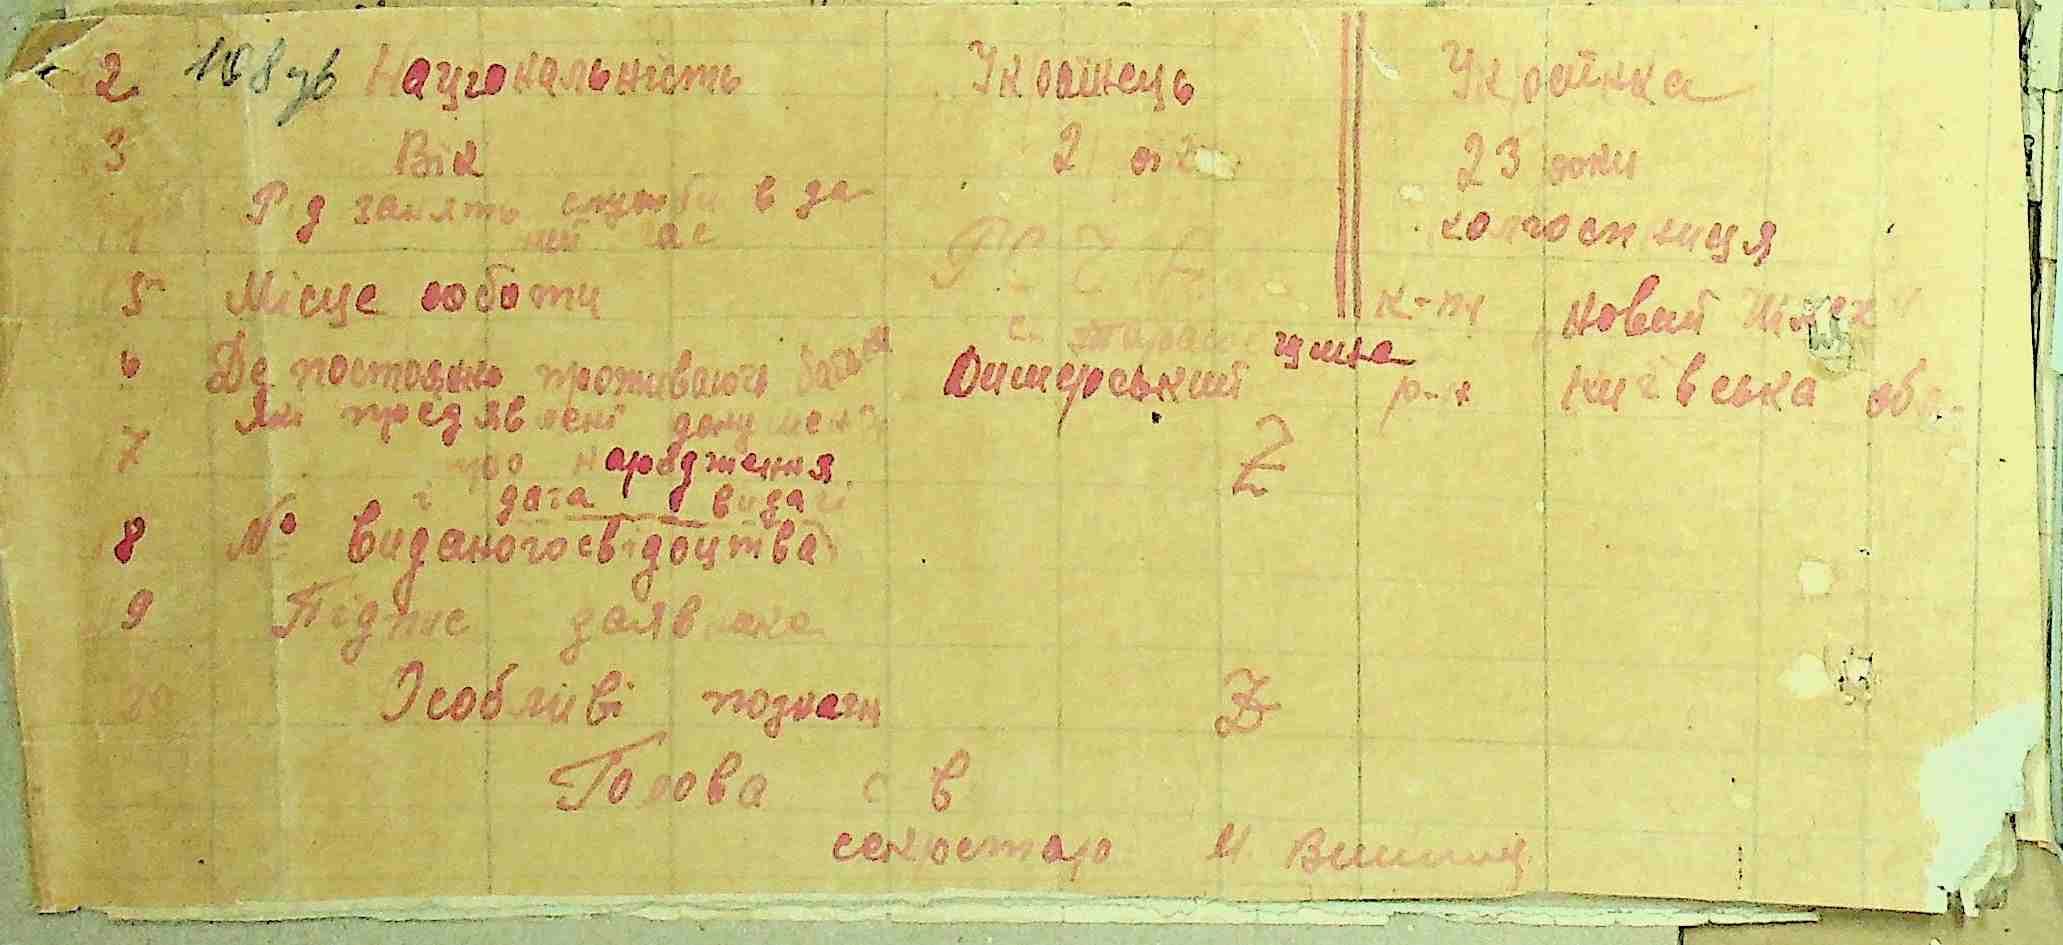 2 198зв Національність Українець Українка
3 Вік 2 23 роки
Рід занять служби в да-
ний час Р С Ч А колгоспниця
5 Місце роботи к-пи Новий Шлях"
6 Де постояно проживають батьки с. Тарасовщина
Димерський р-н Київська обл.
7 Які предявлені документи
про народження Z
і дата видачі
8 № виданого свідоцтва
9 Підпис заявника
10 Особливі познаки Z
Голова с в
секретар М